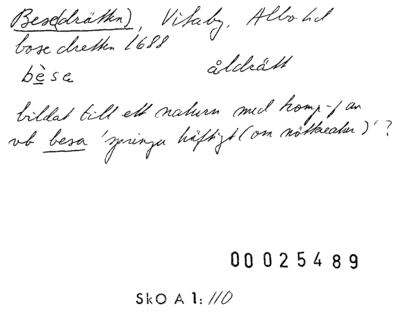 Bese(drätten), Vitaby, Albo hd
bosedretten 1688
bèsa åldrätt
bildat till ett naturn med komp-f av
vb besa 'springa häftigt (om nötkreatur)'?
00025489
SkO A 1: 110